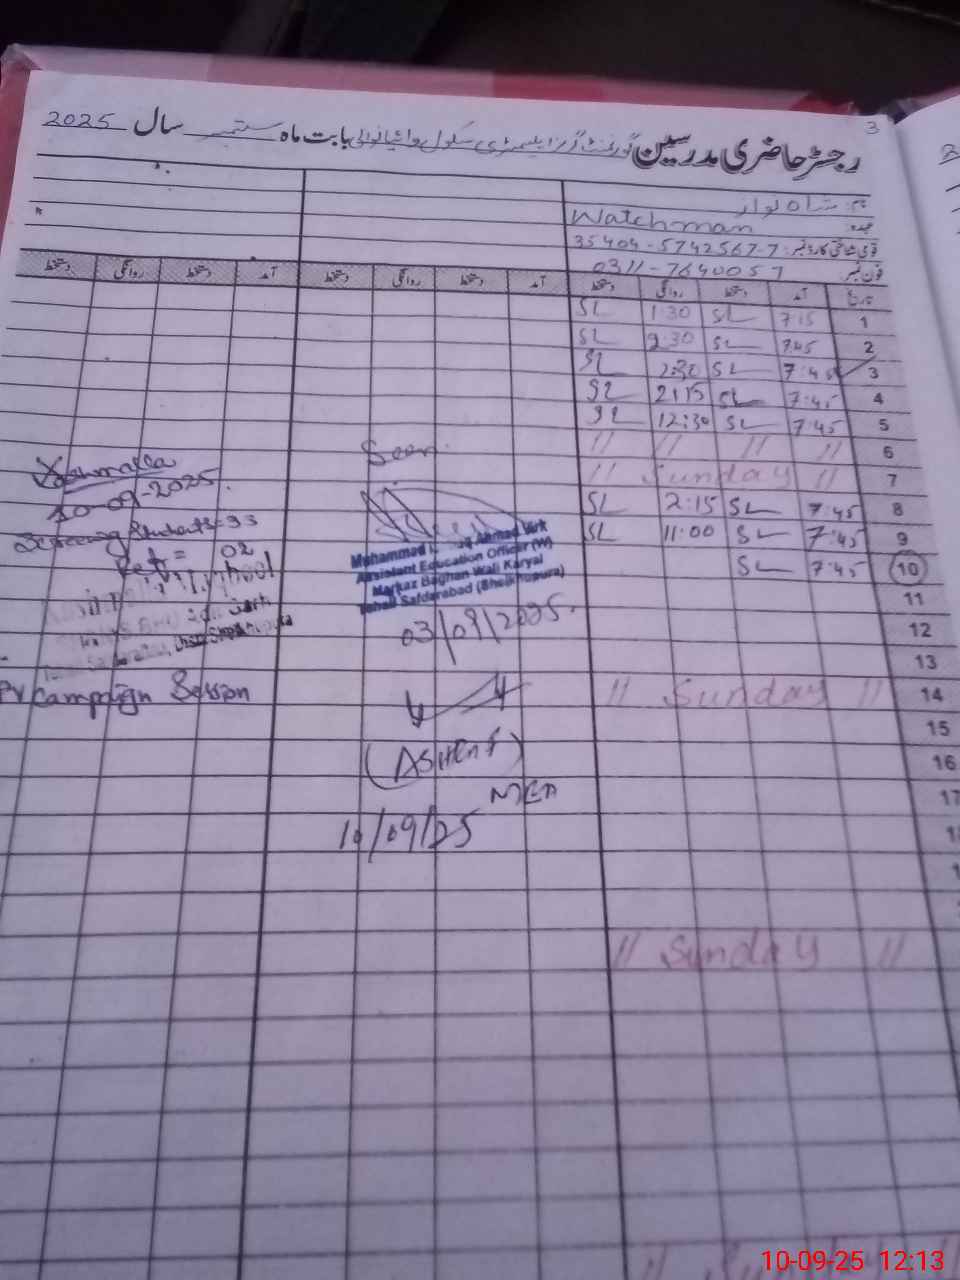 3
رجسٹر حاضری مدرسین گورنمنٹ گرلز ایلیمنٹری سکول بابت ماہ ستمبر سال 2025
نام: شاہ نواز
عہدہ Watchman
قومی شناختی کارڈ نمبر: 35404-5742567-7
فون نمبر 0311-7640057
تاریخ آمد دستخط روانگی دستخط آمد دستخط روانگی دستخط آمد دستخط روانگی دستخط
1 7:15 SL 1:30 SL
2 7:45 SL 2:30 SL
3 7:45 SL 2:30 SL
4 7:45 SL 2:15 SL
5 7:45 SL 12:30 SL
6 // // // //
7 // Sunday //
8 7:45 SL 2:15 SL
9 7:45 SL 11:00 SL
10 7:45 SL
11
12
13
14 // Sunday //
15
16
17
// Sunday //
Seen
Muhammad Ahmad Virk
Assistant Education Officer (W)
Markaz Baghan Wali Karyal
Tehsil Safdarabad (Sheikhupura)
03/09/2025.
(ASHRAF)
MEA
10/09/25
10-09-2025.
Screening Students = 33
Ref = 02
Campaign Session
10-09-25 12:13